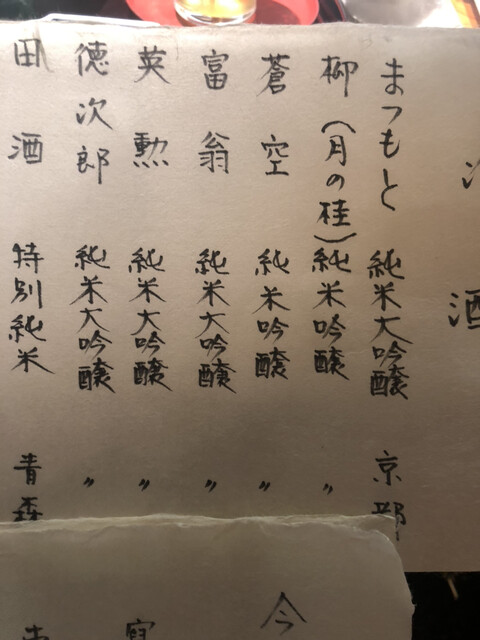 酒
まつもと 純米大吟醸 京都
柳（月の桂） 純米吟醸 〃
蒼空 純米吟醸 〃
富翁 純米大吟醸 〃
英勲 純米大吟醸 〃
徳次郎 純米大吟醸 〃
田酒 特別純米 青森
今